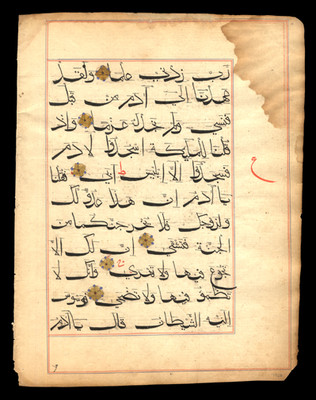 رب زدني علما ولقد
عهدنا الى ادم من قبل
فنسي ولم نجد له عزما واذ
قلنا للملئكة اسجدوا لادم
فسجدوا الا ابليس ابى فقلنا
يا ادم ان هذا عدو لك
ولزوجك فلا يخرجنكما من
الجنة فتشقى ان لك الا
تجوع فيها ولا تعرى وانك لا
تظمؤ فيها ولا تضحى فوسوس
اليه الشيطان قال يا ادم
ع